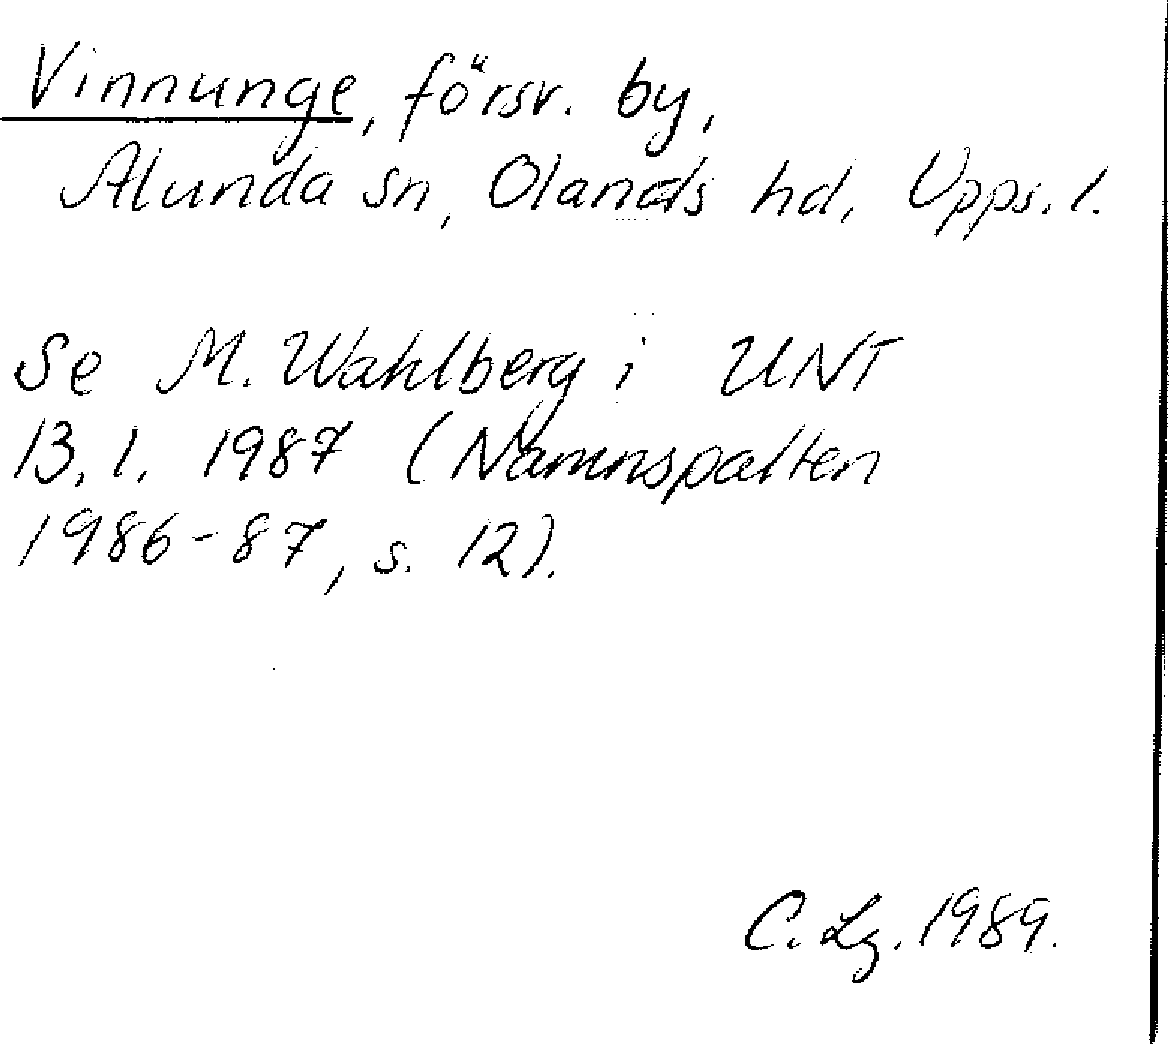 Vinnunge, försv. by,
Alunda sn, Olands hd, Upps. l.
Se M. Wahlberg i UNT
13.1. 1987 (Namnspalten
1986-87, s. 12).
C. Lg. 1989.